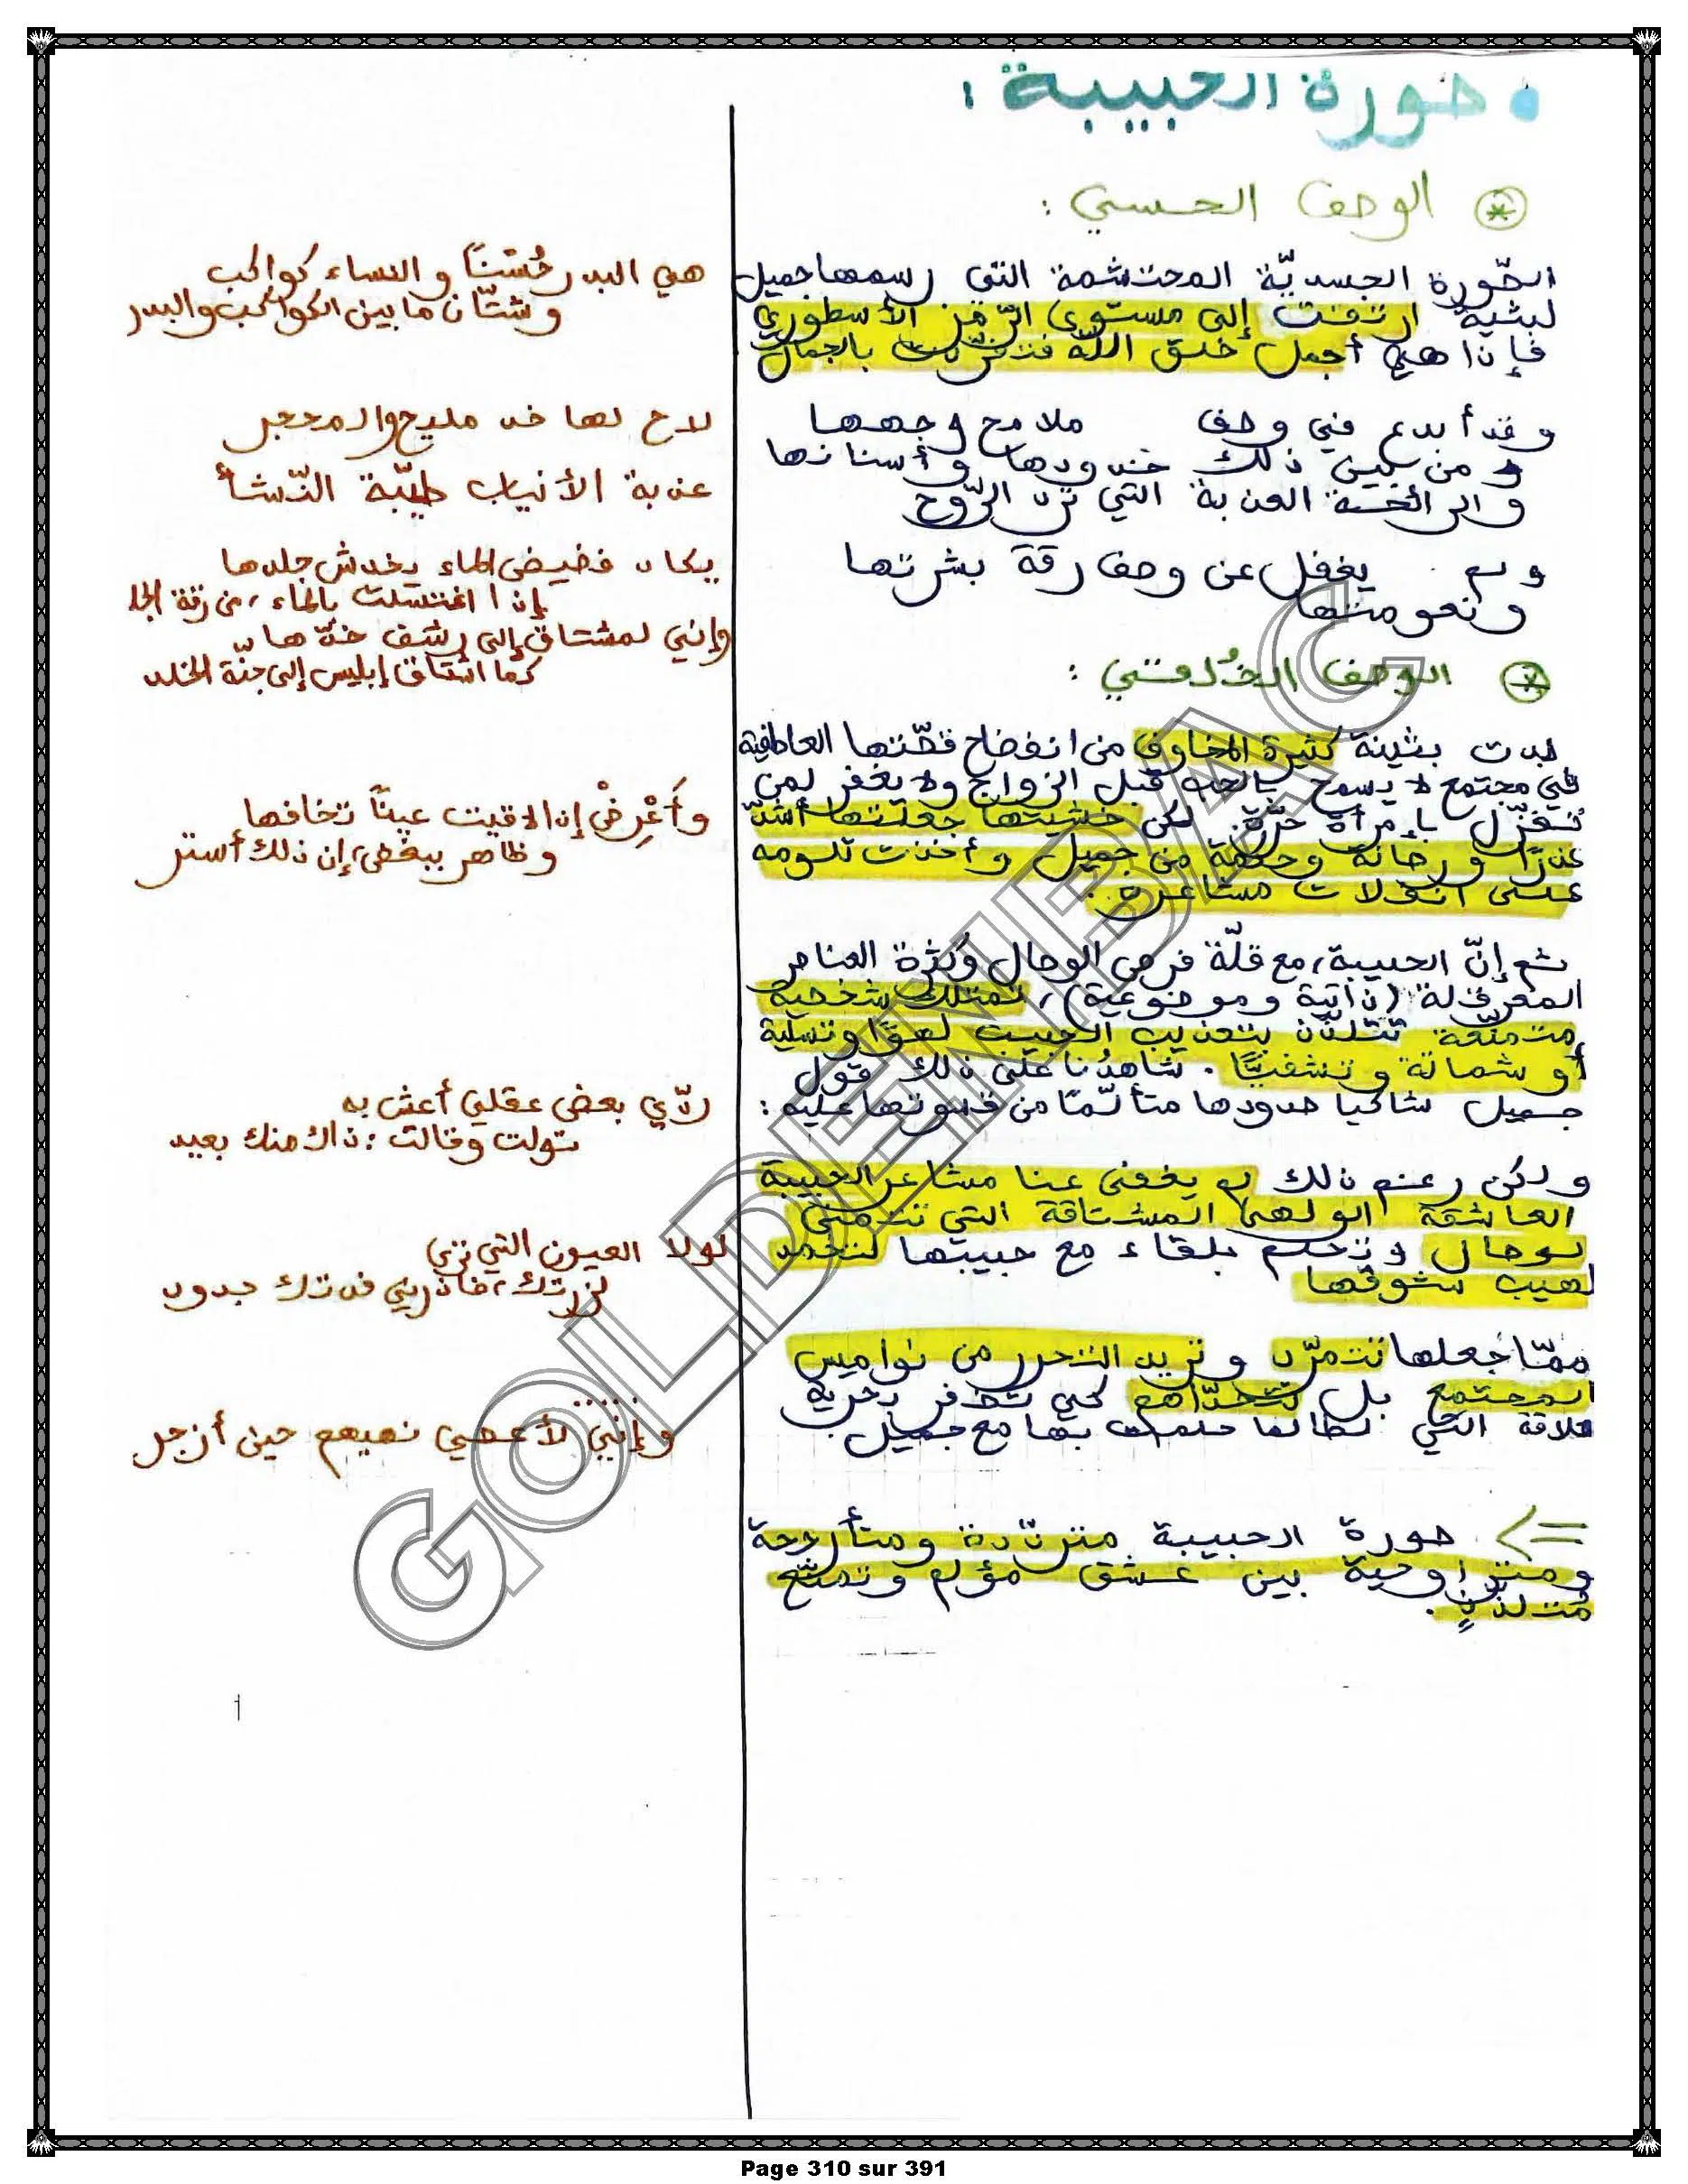 • صورة الحبيبة :
الوصف الحسي :
الصّورة الجسديّة المحتشمة التي رسمها جميل
لبثينة ارتقت إلى مستوى الرّمز الأسطوري
فإذا هي أجمل خلق الله بالجمال
وقد أبدع في وصف ملامح وجهها
و من بين ذلك خدودها وأسنانها
والرائحة العذبة التي ترد الرّوح
و لم يغفل عن وصف رقة بشرتها
ونعومتها
الوصف الخُلُقي :
بدت بثينة كثيرة المخاوف من انفضاح قصّتها العاطفية
في مجتمع لا يسمح بالحب قبل الزواج ولا يغفر لمن
تغزّل بإمرأة حرّة. لكن خشيتها جعلتها أشدّ
حذرًا و رصانة وحكمة من جميل و أخذت تلومه
على انفلات مشاعره.
ثم إنّ الحبيبة، مع قلّة فرص الوصال وكثرة العناصر
المعرقلة (ذاتية و موضوعية)، تمتلك شخصية
متمنّعة تتلذّذ بتعذيب الحبيب لهوًا وتسلية
أو شماتة و تشفيًّا. شاهدُنا على ذلك قول
جميل شاكيا صدودها متألّمًا من قسوتها عليه :
ولكن رغم ذلك لم يخفى عنا مشاعر الحبيبة
العاشقة الولهى المشتاقة التي تتمنى
لوصال و تحلم بلقاء مع حبيبها لتخمد
لهيب شوقها
ممّا جعلها تتمرّد و تريد التحرر من نواميس
المجتمع بل تتحدّاهم كي تظفر بحرية
علاقة التي لطالما حلمت بها مع جميل
=> صورة الحبيبة متردّدة ومتأرجحة
ومتراوحية بين عشق مؤلم وتمنّع
مُتلذّذٍ.
هي البدر حُسْنًا و النساء كواكب
و شتّان ما بين الكواكب والبدر
لاح لها خد مليح والمحجر
عذبة الأنياب طيّبة النّشأ
يكاد فضيض الماء يخدش جلدها
إذا اغتسلت بالماء، من رقة الجلد
وإنّي لمشتاق إلى رشف خدّها
كما اشتاق إبليس إلى جنّة الخلد
وأَعْرِضْ إن لاقيت عينًا تخافها
و ظاهر ببغض، إن ذلك أستر
ردّي بعض عقلي أعش به
تولت وقالت : ذاك منك بعيد
لولا العيون التي ترى
لزرتك، فاذريني فدتك جدود
وإنّي لأعصي نهيهم حين أزجر
GOLDENBAC
Page 310 sur 391